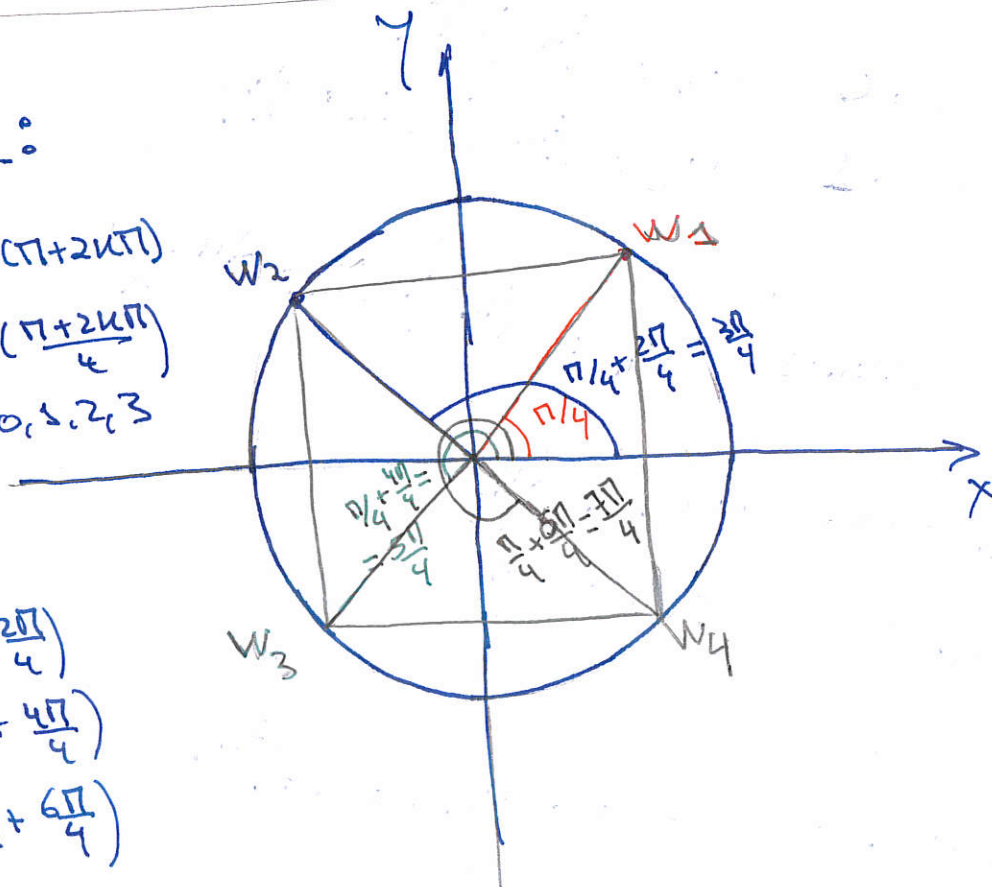 Y
:
(π+2kπ)
(π+2kπ/4)
0,1,2,3
2π/4)
+ 4π/4)
+ 6π/4)
W1
W2
π/4 + 2π/4 = 3π/4
π/4
X
π/4 + 4π/4 =
= 5π/4
π/4 + 6π/4 = 7π/4
W3
W4